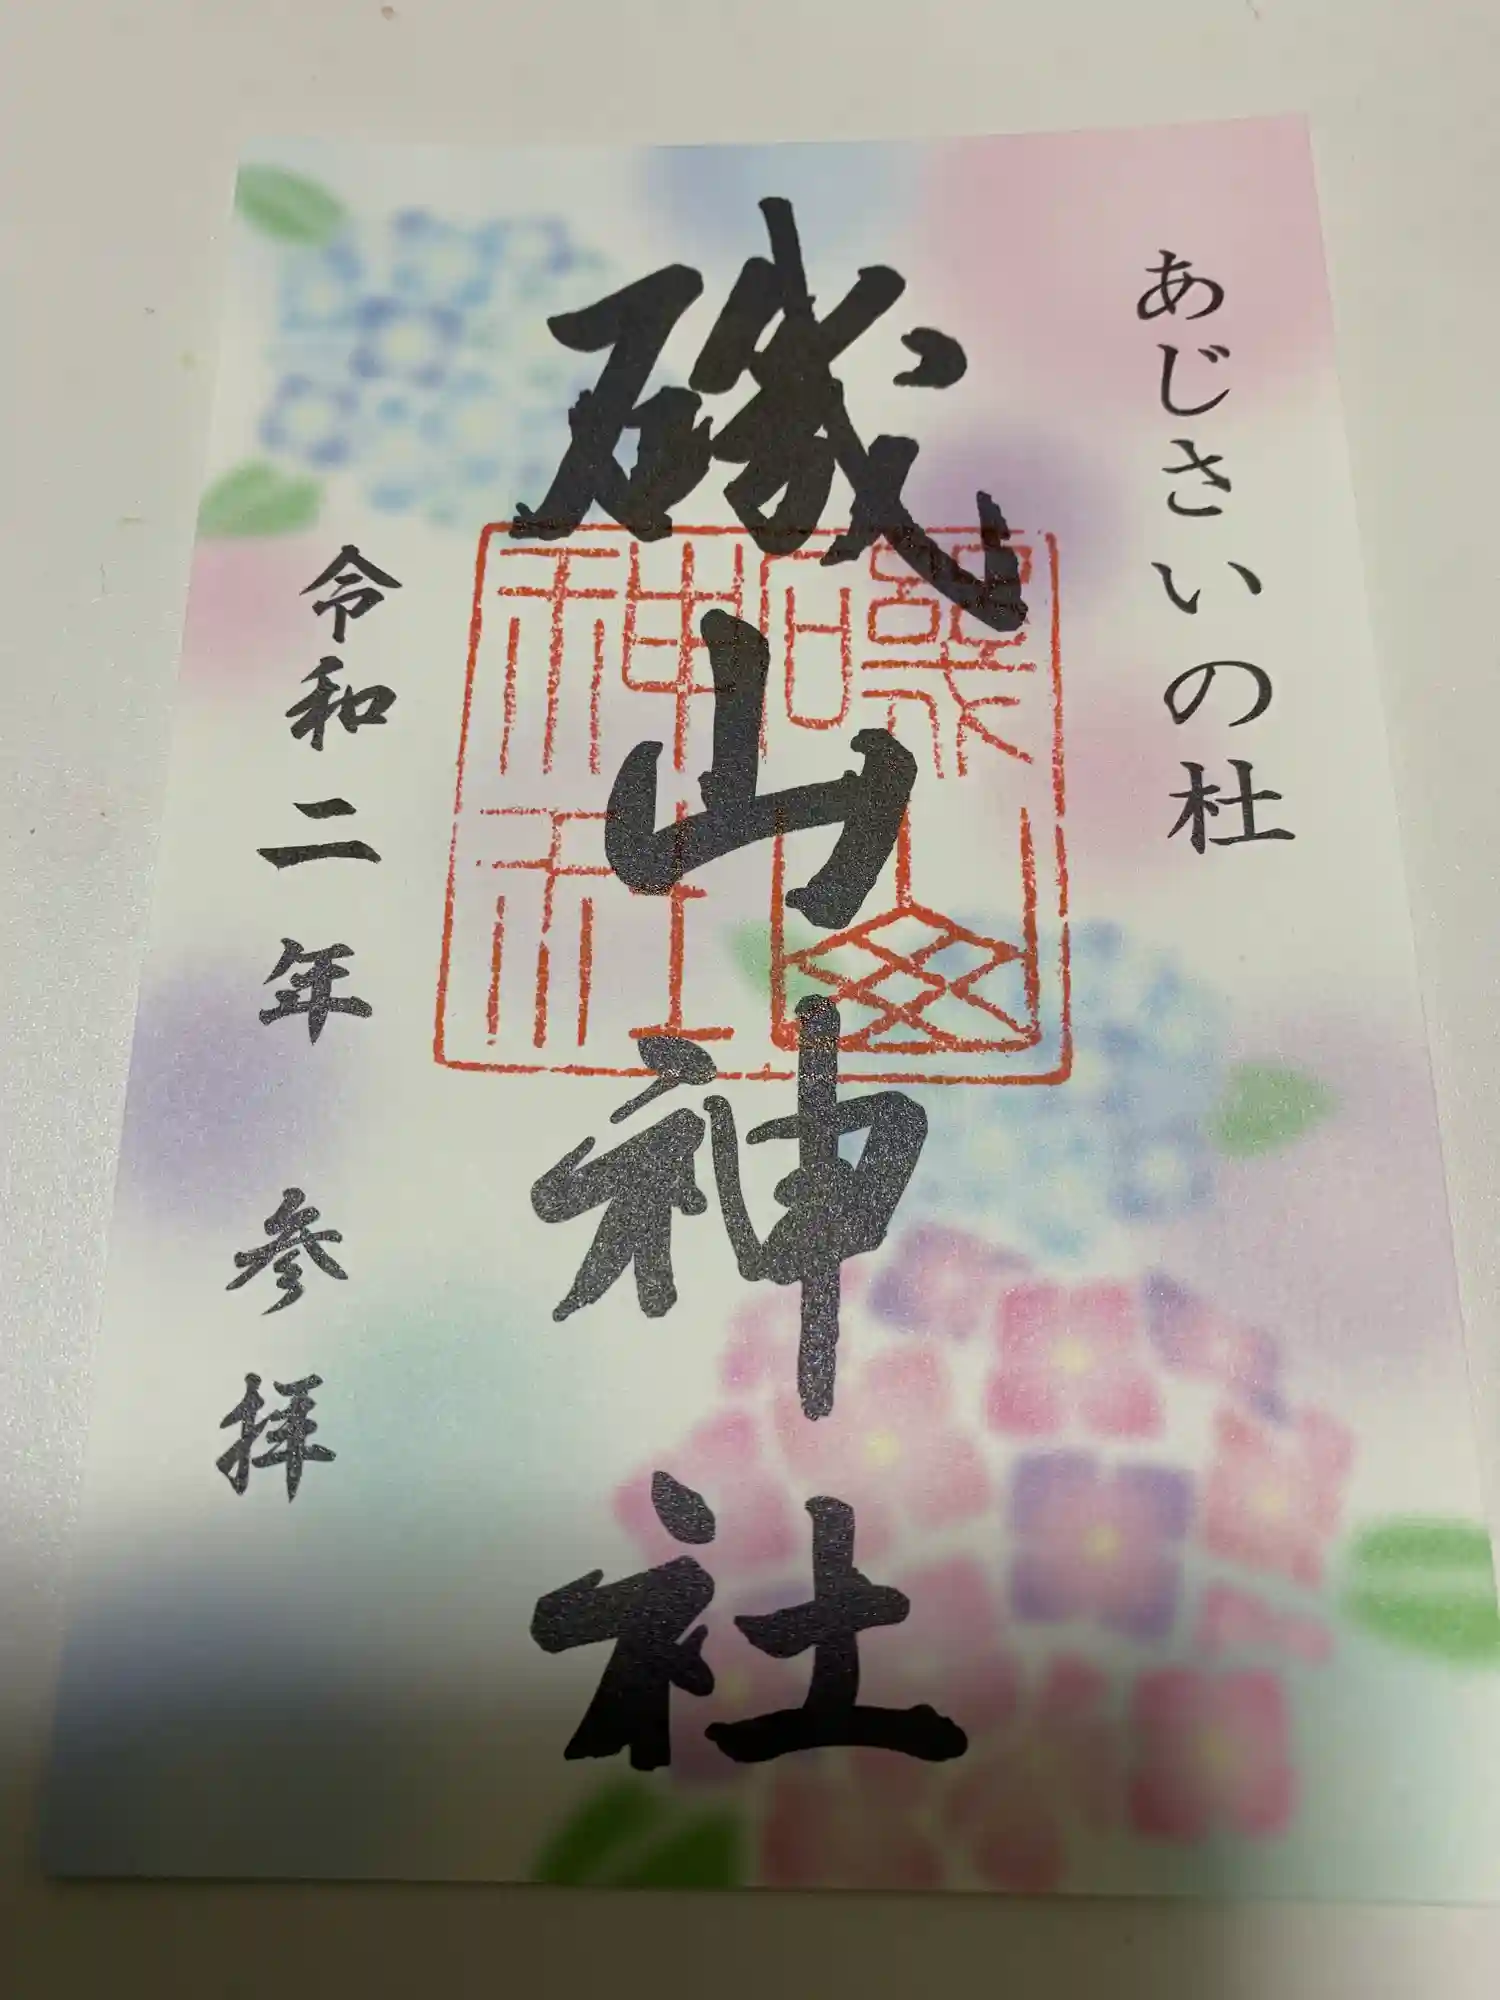 あじさいの杜
磯山神社
令和二年 参拝
磯山神社